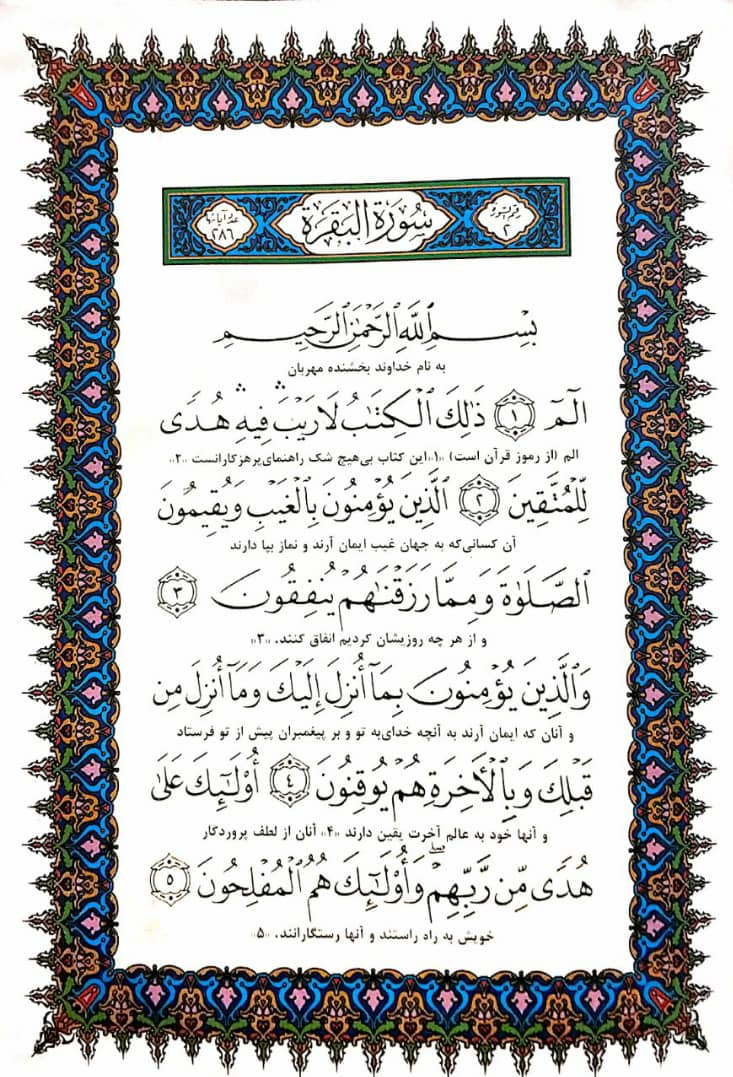 رقم السورة
٢
سُورَةُ البَقَرَةِ
عدد آياتها
٢٨٦
بِسْمِ ٱللَّهِ ٱلرَّحْمَٰنِ ٱلرَّحِيمِ
به نام خداوند بخشنده مهربان
الٓمٓ ١ ذَٰلِكَ ٱلْكِتَٰبُ لَا رَيْبَ ۛ فِيهِ ۛ هُدًى
الم (از رموز قرآن است) «۱» این کتاب بی‌هیچ شک راهنمای پرهیزکارانست «۲»
لِّلْمُتَّقِينَ ٢ ٱلَّذِينَ يُؤْمِنُونَ بِٱلْغَيْبِ وَيُقِيمُونَ
آن کسانی‌که به جهان غیب ایمان آرند و نماز بپا دارند
ٱلصَّلَوٰةَ وَمِمَّا رَزَقْنَٰهُمْ يُنفِقُونَ ٣
و از هر چه روزیشان کردیم انفاق کنند. «۳»
وَٱلَّذِينَ يُؤْمِنُونَ بِمَآ أُنزِلَ إِلَيْكَ وَمَآ أُنزِلَ مِن
و آنان که ایمان آرند به آنچه خدای‌به تو و بر پیغمبران پیش از تو فرستاد
قَبْلِكَ وَبِٱلْأَخِرَةِ هُمْ يُوقِنُونَ ٤ أُوْلَٰٓئِكَ عَلَىٰ
و آنها خود به عالم آخرت یقین دارند «۴» آنان از لطف پروردگار
هُدًى مِّن رَّبِّهِمْ ۖ وَأُوْلَٰٓئِكَ هُمُ ٱلْمُفْلِحُونَ ٥
خویش به راه راستند و آنها رستگارانند. «۵»